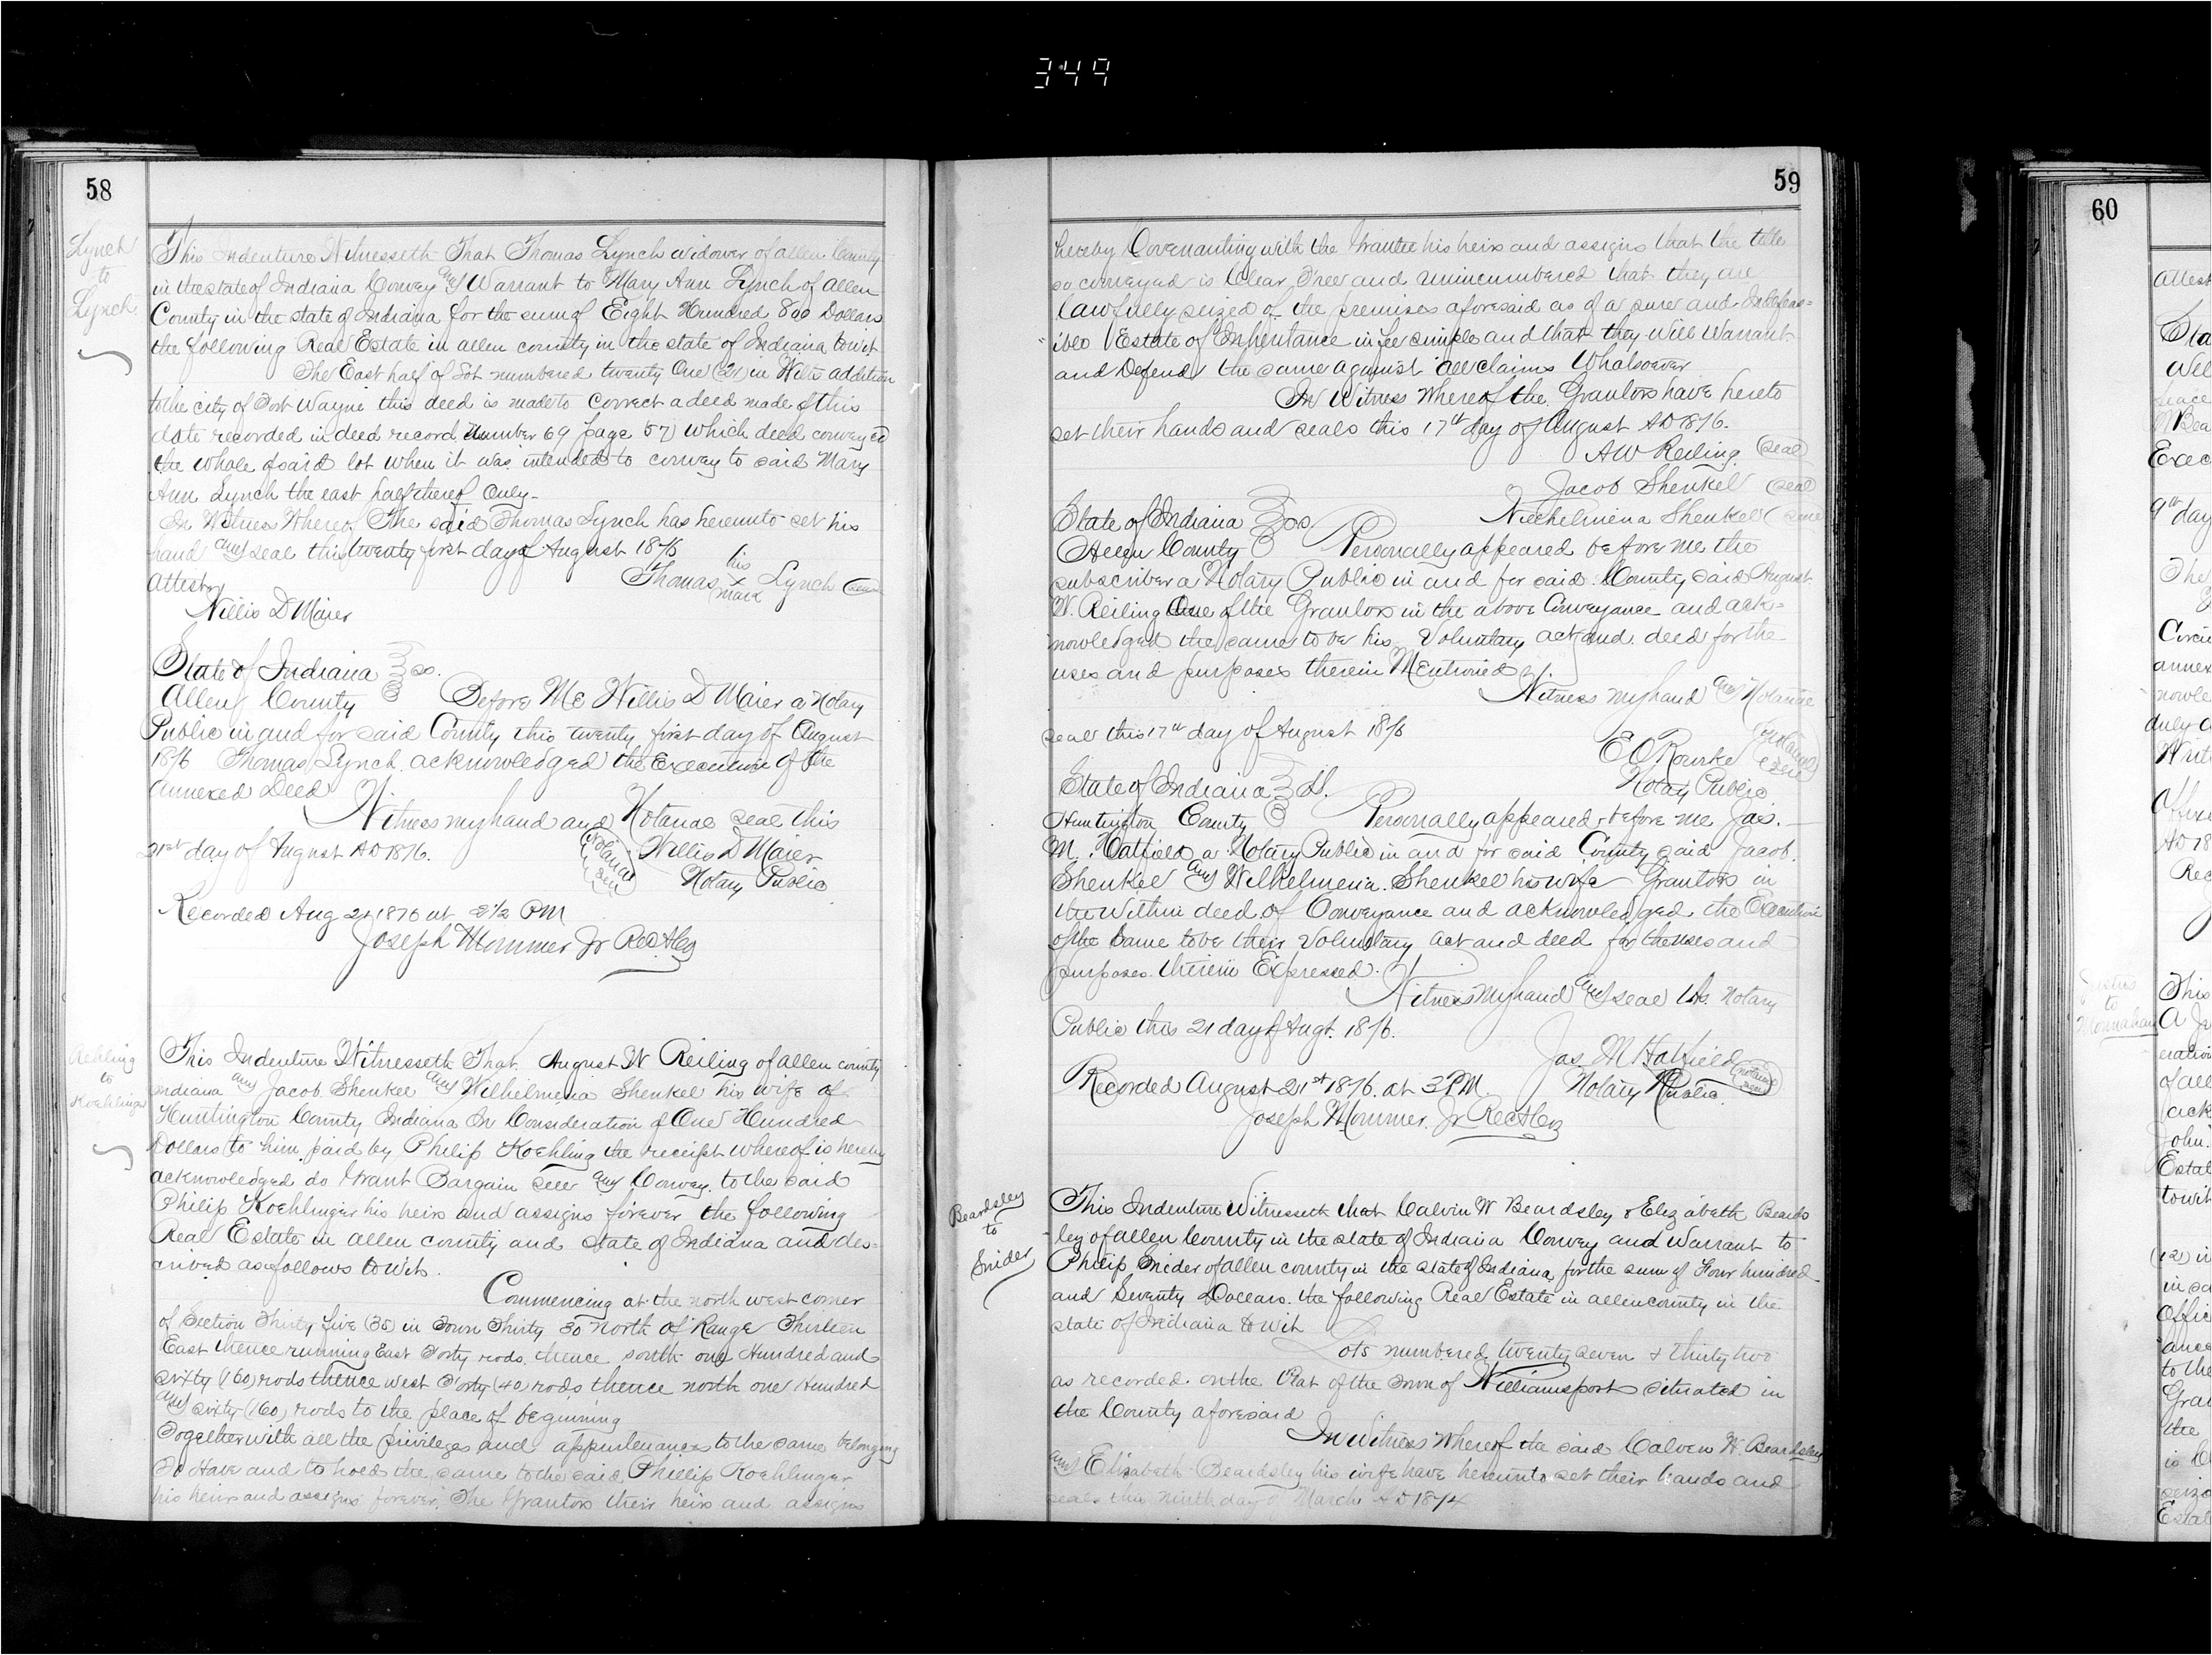 349
58
Lynch
to
Lynch
This Indenture Witnesseth That Thomas Lynch widower of allen County
in the state of Indiana Convey and Warrant to Mary Ann Lynch of allen
County in the state of Indiana for the sum of Eight Hundred 800 Dollars
the following Real Estate in allen county in the state of Indiana towit
The East half of Lot numbered twenty One (21) in addition
to the city of Fort Wayne this deed is made to correct a deed made of this
date recorded in deed record Number 69 page 57) which deed conveyed
the whole of said lot when it was intended to convey to said Mary
Ann Lynch the east half thereof Only-
In Witness Whereof The said Thomas Lynch has hereunto set his
hand and seal this twenty first day of August 1876
his
Thomas x Lynch (seal)
mark
attest
Willis D Maier
State of Indiana } ss.
Allen County Before Me Willis D Maier a Notary
Public in and for said County this twenty first day of August
1876 Thomas Lynch acknowledged the Execution of the
annexed Deed
Witness my hand and Notarial seal this
21st day of August AD 1876. (Notarial Seal) Willis D Maier
Notary Public
Recorded Aug 21 1876 at 2 1/2 PM
Joseph Mommer Jr Rec
Rehling
to
Koehlinger
This Indenture Witnesseth That August W Reiling of allen county
Indiana and Jacob Shenkel and Wilhelmena Shenkel his wife of
Huntington County Indiana In Consideration of One Hundred
Dollars to him paid by Philip Koehling the receipt whereof is hereby
acknowledged do Grant Bargain sell and Convey to the said
Philip Koehlinger his heirs and assigns forever the following
Real Estate in allen county and State of Indiana and des=
cribed as follows to wit.
Commencing at the north west corner
of Section Thirty five (35) in Town Thirty 30 North of Range Thirteen
East thence running East Forty rods thence south one Hundred and
sixty (160) rods thence west Forty (40) rods thence north one Hundred
and sixty (160) rods to the place of beginning
Together with all the privileges and appurtenances to the same belonging
To Have and to hold the same to the said Phillip Koehlinger
his heirs and assigns forever. The Grantors their heirs and assigns
59
hereby Covenanting with the Grantee his heirs and assigns that the title
so conveyed is Clear Free and Unincumbered that they are
lawfully seized of the premises aforesaid as of a sure and Indefeas=
ible Estate of Inheritance in fee simple and that they will Warrant
and Defend the same against all claims Whatsoever
In Witness Whereof the Grantors have hereto
set their hands and seals this 17th day of August AD 1876.
AW Reiling (seal)
Jacob Shenkel (seal)
Wilhelmina Shenkel (seal)
State of Indiana } ss
Allen County Personally appeared before me the
subscriber a Notary Public in and for said County said August
W. Reiling One of the Grantors in the above Conveyance and ack=
nowledged the same to be his Voluntary act and deed for the
uses and purposes therein Mentioned
Witness my hand and Notarial
seal this 17th day of August 1876
E O Rourke (Notarial seal)
Notary Public
State of Indiana } SS.
Huntington County Personally appeared before me Jas.
M. Hatfield a Notary Public in and for said County said Jacob
Shenkel and Wilhelmena Shenkel his wife Grantors in
the Within deed of Conveyance and acknowledged the Execution
of the same to be their Voluntary act and deed for the uses and
purposes therein Expressed.
Witness my hand and seal as Notary
Public this 21 day of Augt. 1876.
Jas. M Hatfield (notarial seal)
Recorded August 21st 1876 at 3 PM. Notary Public
Joseph Mommer Jr Rec
Beardsley
to
Snider
This Indenture Witnesseth that Calvin W Beardsley & Elizabeth Beards
ley of allen County in the state of Indiana Convey and Warrant to
Philip Snider of allen county in the state of Indiana for the sum of Four hundred
and Seventy Dollars the following Real Estate in allen county in the
state of Indiana to wit
Lots numbered twenty seven & thirty two
as recorded on the Plat of the Town of Williamsport situated in
the County aforesaid
In Witness Whereof the said Calvin W. Beardsley
and Elizabeth Beardsley his wife have hereunto set their hands and
seals this ninth day of March AD 1874
60
attest
9th day
The
annex
duly
AD 18
Rec
to
Monnahan
This
John
Estat
towit
(12) in
to the
the
Estat